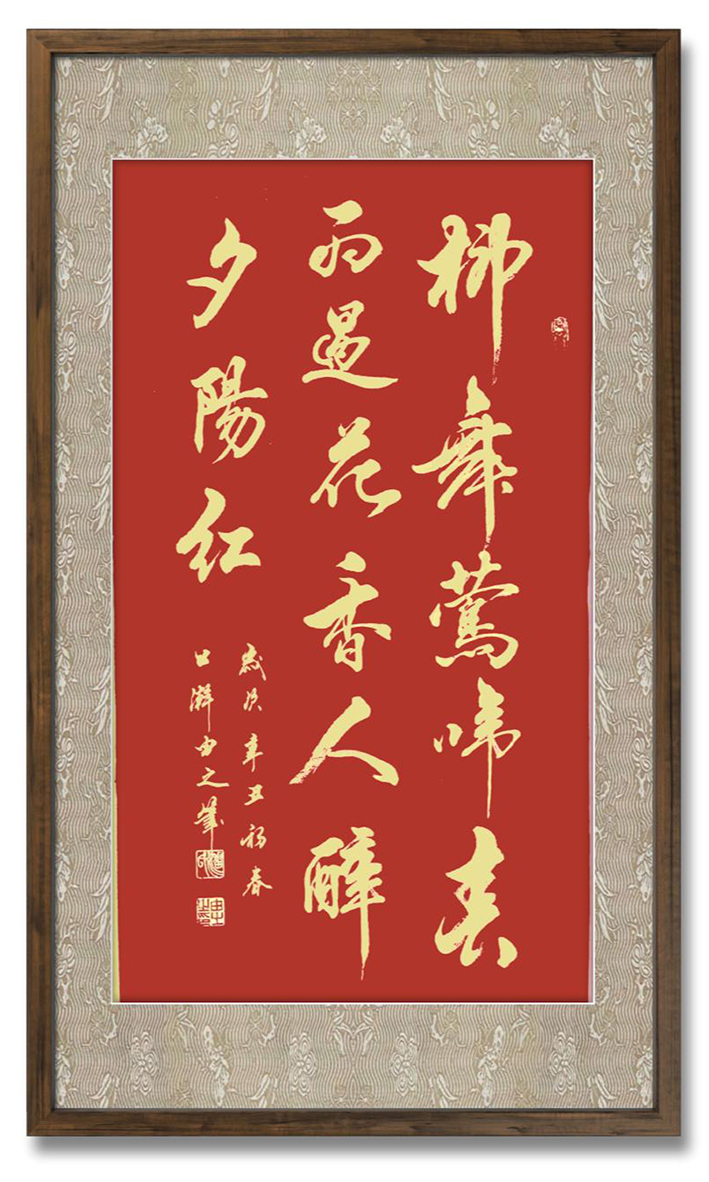 柳舞鶯啼春
雨過花香人醉
夕陽红
歲次辛丑初春
由之筆